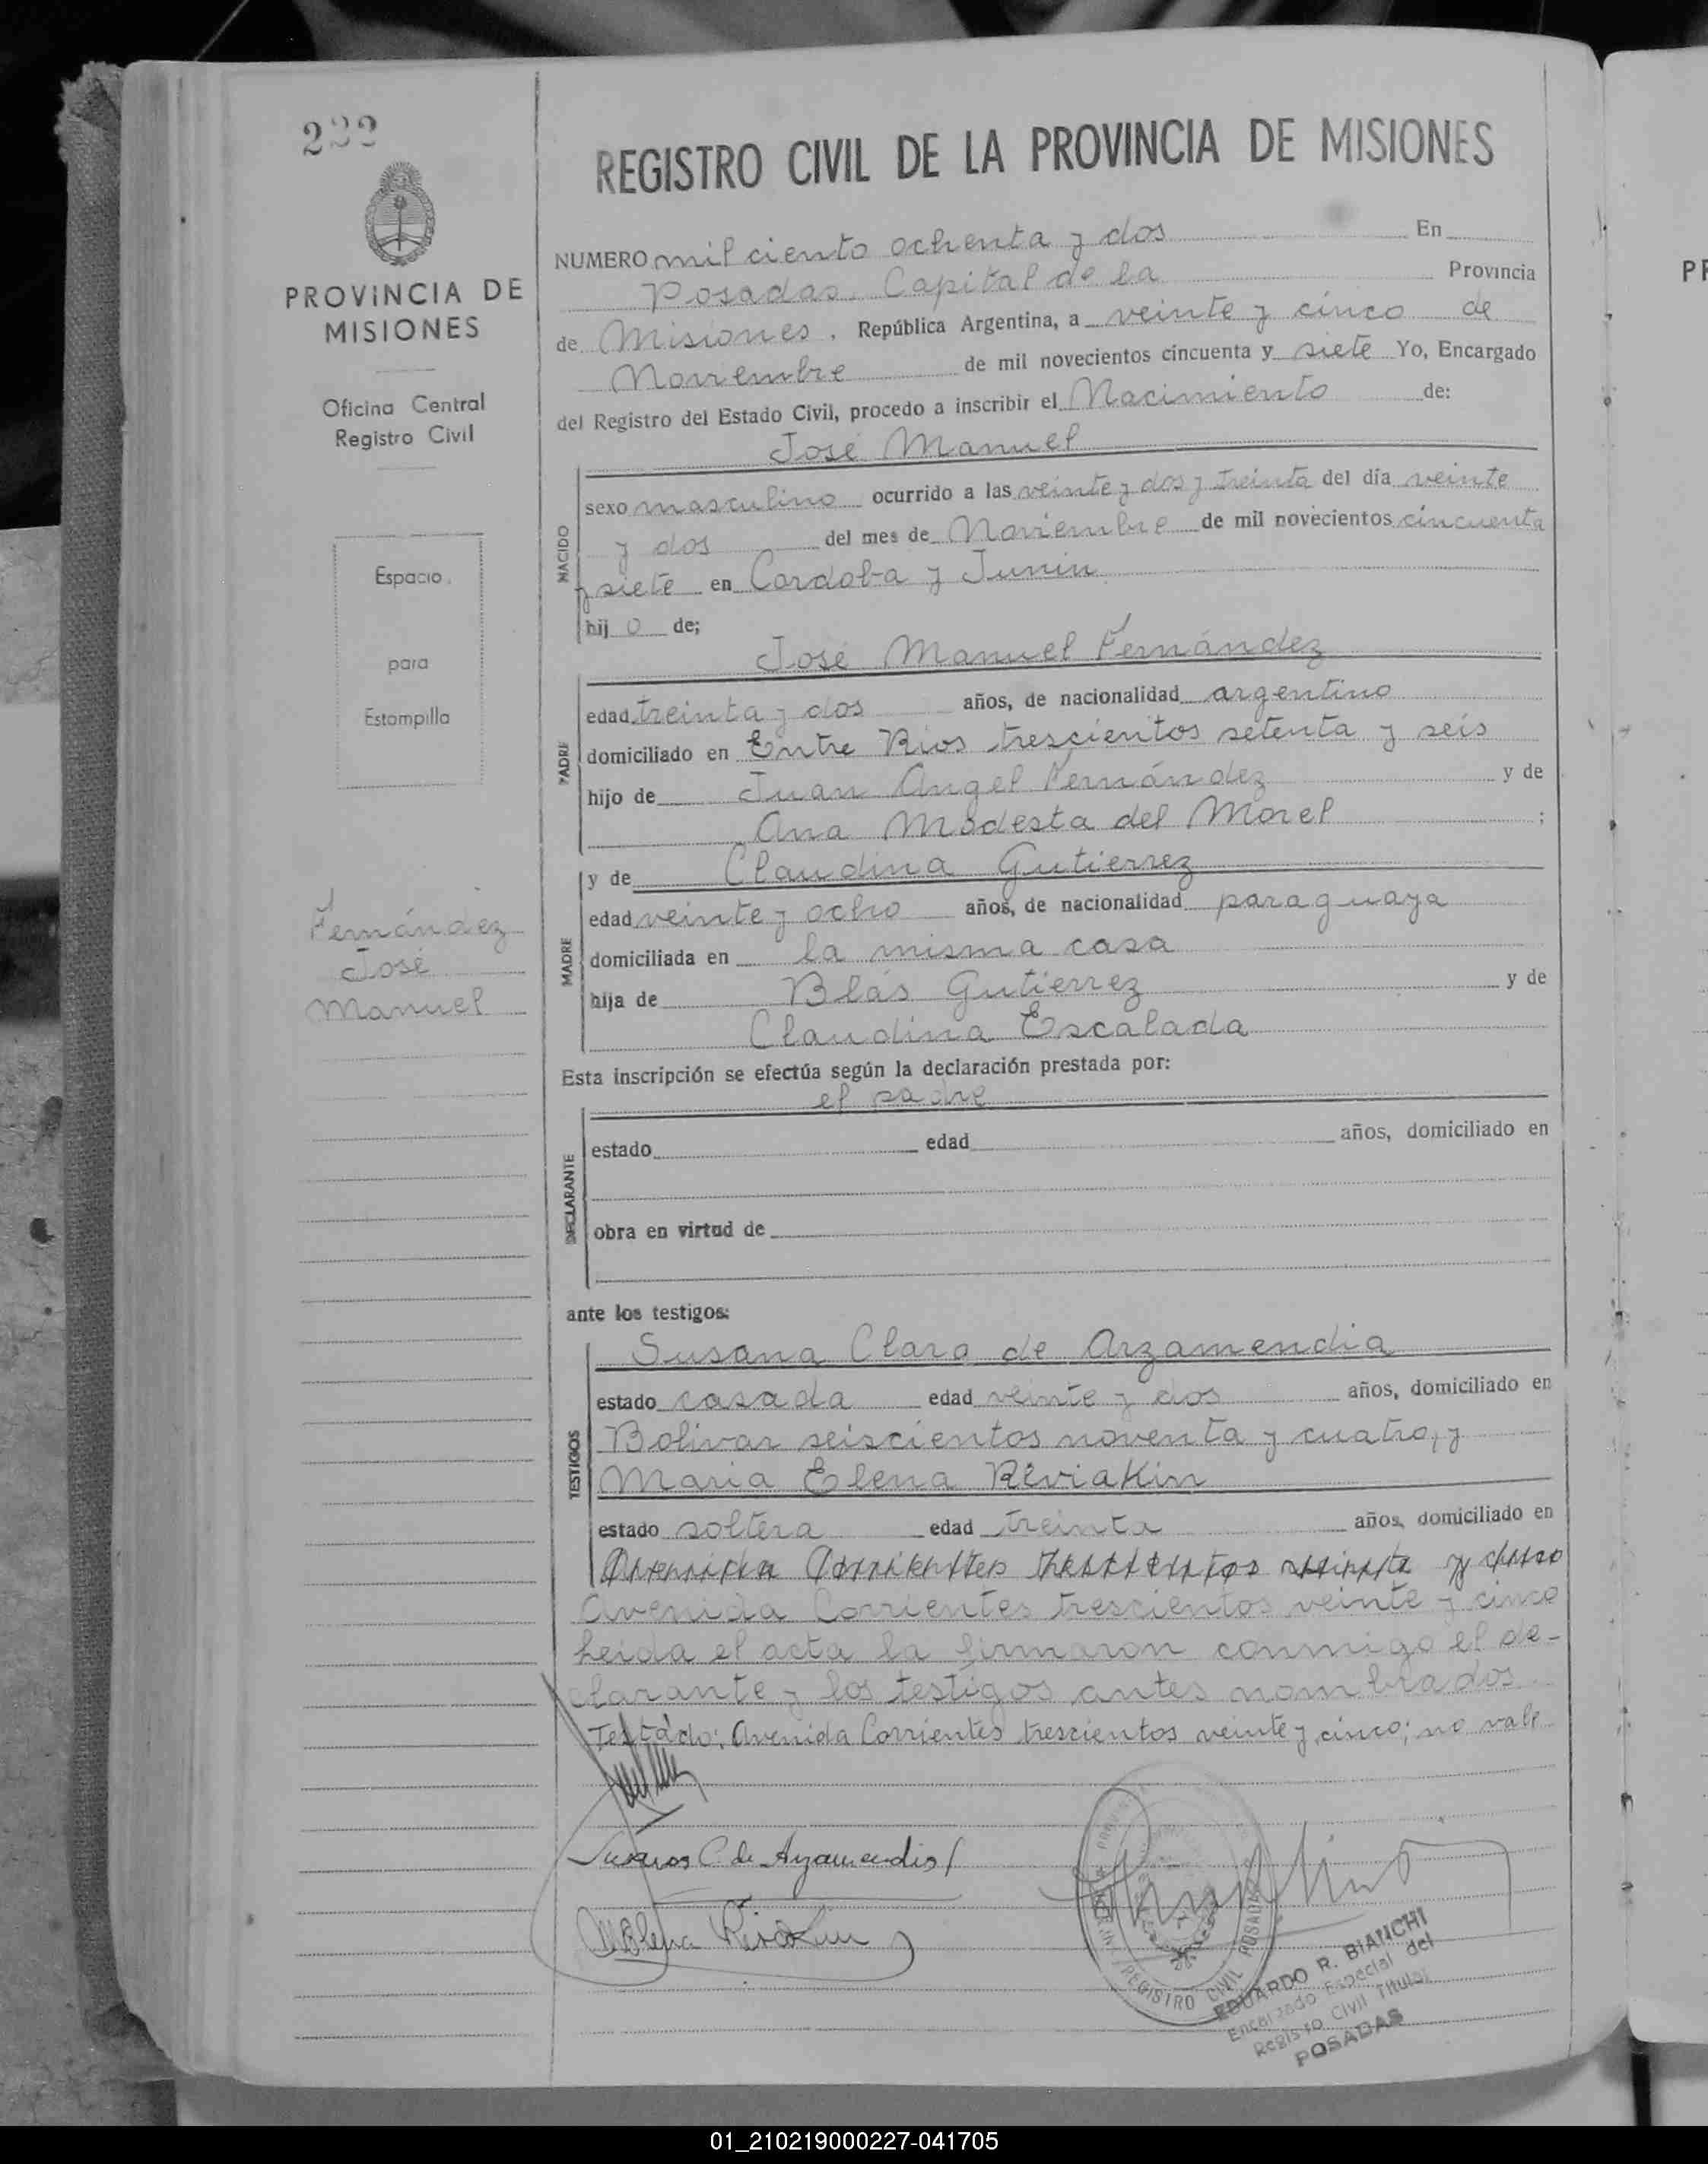 232
PROVINCIA DE
MISIONES
Oficina Central
Registro Civil
Espacio
para
Estampilla
Fernández
José
Manuel
REGISTRO CIVIL DE LA PROVINCIA DE MISIONES
NUMERO mil ciento ochenta y dos En
Posadas, Capital de la Provincia
de Misiones, República Argentina, a veinte y cinco de
Noviembre de mil novecientos cincuenta y siete Yo, Encargado
del Registro del Estado Civil, procedo a inscribir el Nacimiento de:
José Manuel
NACIDO
sexo masculino ocurrido a las veinte y dos y treinta del día veinte
y dos del mes de Noviembre de mil novecientos cincuenta
y siete en Cordoba y Junín
hijo de;
José Manuel Fernández
PADRE
edad treinta y dos años, de nacionalidad argentino
domiciliado en Entre Rios trescientos setenta y seis
hijo de Juan Angel Fernández y de
Ana Modesta del Morel ;
y de Claudina Gutierrez
MADRE
edad veinte y ocho años, de nacionalidad paraguaya
domiciliada en la misma casa
hija de Blás Gutiérrez y de
Claudina Escalada
Esta inscripción se efectúa según la declaración prestada por:
el padre
DECLARANTE
estado edad años, domiciliado en
obra en virtud de
ante los testigos:
Susana Clara de Arzamendia
TESTIGOS
estado casada edad veinte y dos años, domiciliado en
Bolivar seiscientos noventa y cuatro, y
Maria Elena Riviakin
estado soltera edad treinta años, domiciliado en
Avenida Corrientes trescientos veinte y cinco
Avenida Corrientes trescientos veinte y cinco
Leida el acta la firmaron conmigo el de-
clarante y los testigos antes nombrados
Testado: Avenida Corrientes trescientos veinte y cinco; no vale
Susana C. de Arzamendia
REGISTRO CIVIL POSADAS
EDUARDO R. BIANCHI
Encargado Especial del
Registro Civil Titular
POSADAS
01_210219000227-041705